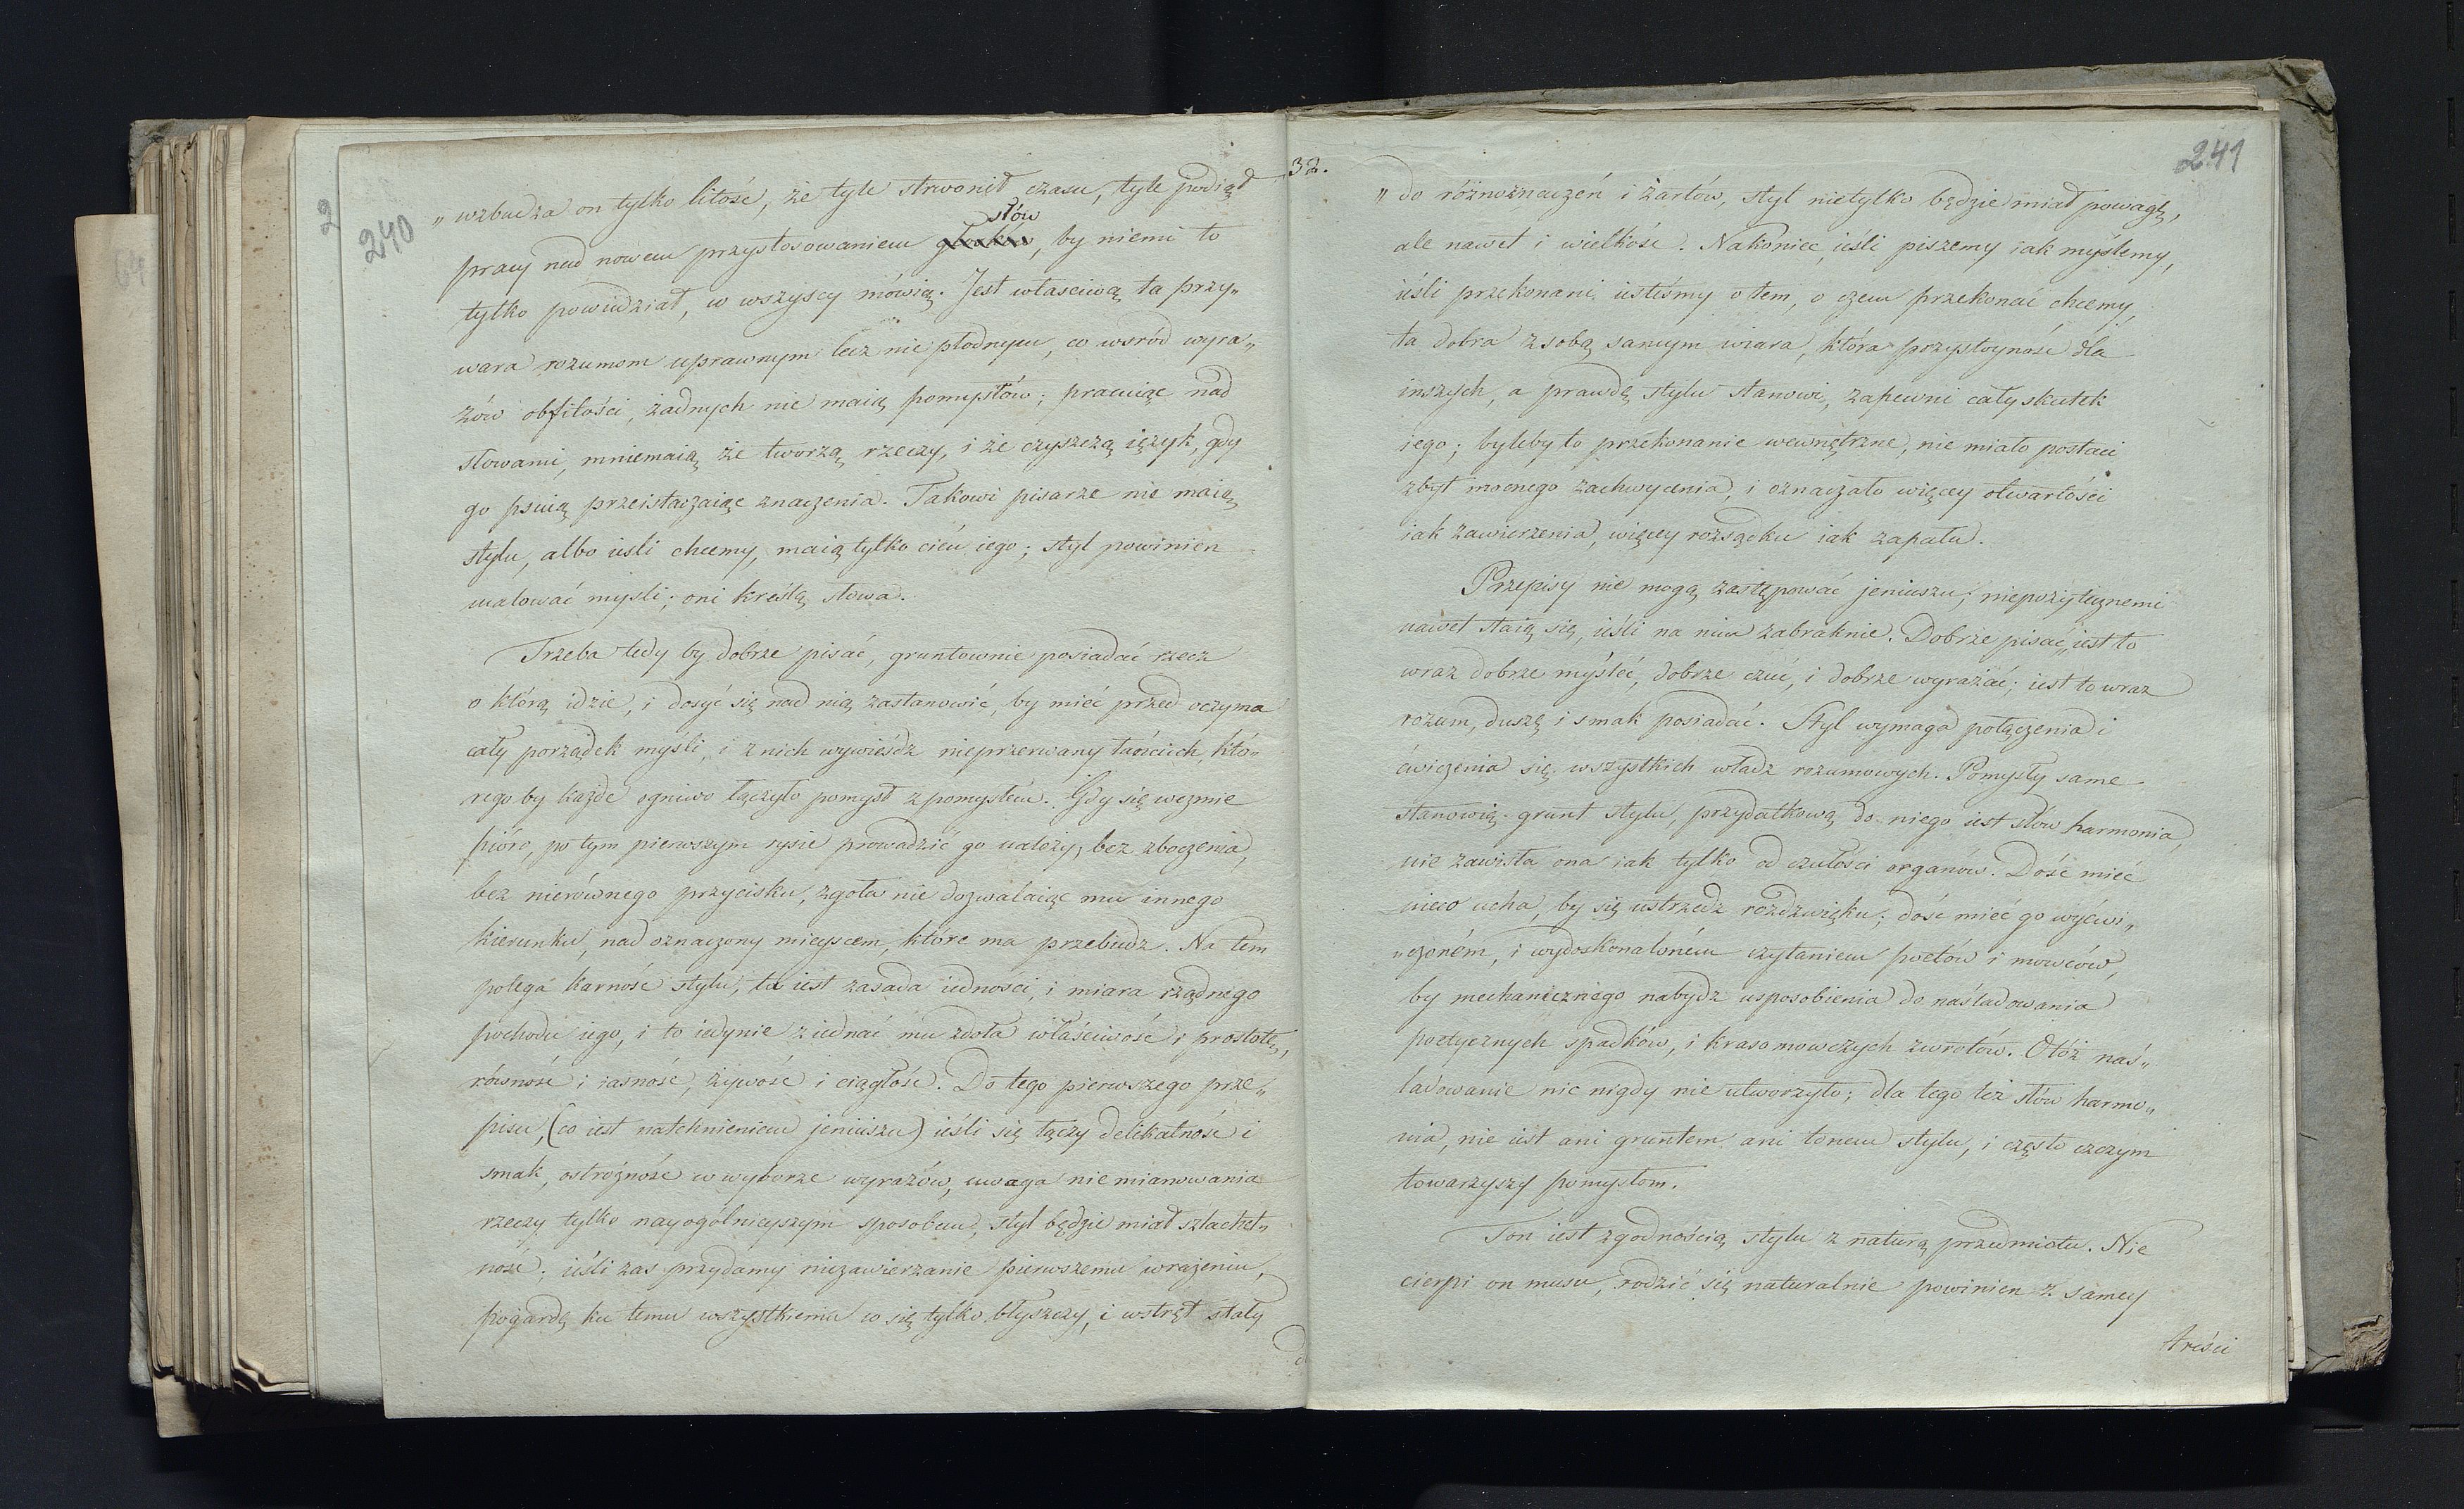 2
240
„wzbudza on tylko litość, że tyle strwonił czasu, tyle podiął
słów
pracy nad nowem przystosowaniem , by niemi to
tylko powiedział, co wszyscy mówią. Jest właściwą ta przy„
wara rozumom uprawnym lecz nie płodnym, co wsród wyra„
zów obfitości, żadnych nie maią pomysłów; pracuiąc nad
słowami, mniemaią że tworzą rzeczy, i że czyszczą ięzyk, gdy
go psuią przeistaczaiąc znaczenia. Takowi pisarze nie maią
stylu, albo ieśli chcemy, maią tylko cień iego; styl powinien
malować mysli; oni kreślą słowa.
Trzeba tedy by dobrze pisać, gruntownie posiadać rzecz
o którą idzie, i dosyć się nad nią zastanowić, by mieć przed oczyma
cały porządek mysli, i z nich wywieśdz nieprzerwany łańcuch, któ„
rego by każde ogniwo łączyło pomysł z pomysłem. Gdy się wezmie
pióro, po tym pierwszym rysie prowadzić go należy, bez zboczenia,
bez nierównego przycisku, zgoła nie dozwalaiąc mu innego
kierunku, nad oznaczony mieyscem, które ma przebiedz. Na tem
polega karność stylu, ta iest zasada iedności, i miara rządnego
pochodu iego, i to iedynie ziednać mu zdoła właściwość i prostotę,
równość i iasność, żywość i ciągłość. Do tego pierwszego prze„
pisu, (co iest natchnieniem jeniuszu) ieśli się łączy delikatność i
smak, ostrożność w wyborze wyrazów, uwaga nie mianowania
rzeczy tylko nayogólnieyszym sposobem, styl będzie miał szlachet„
ność; ieśli zas przydamy niezawierzanie pierwszemu wrażeniu,
pogardę ku temu wszystkiemu co się tylko błyszczy, i wstręt stały
do
32.
241
„do różnoznaczeń i żartów, styl nietylko będzie miał powagę,
ale nawet i wielkość. Nakoniec, ieśli piszemy iak myślemy,
ieśli przekonani iesteśmy o tem, o czem przekonać chcemy,
ta dobra z sobą samym wiara, która przystoyność dla
inszych, a prawdę stylu stanowi, zapewni cały skutek
iego; byleby to przekonanie wewnętrzne, nie miało postaci
zbyt mocnego zachwycenia, i oznaczało więcey otwartości
iak zawierzenia, więcey rozsądku iak zapału.
Przepisy nie mogą zastępować jeniuszu; niepożytecznemi
nawet staią się, ieśli na nim zabraknie. Dobrze pisać, iest to
wraz dobrze myśleć, dobrze czuć, i dobrze wyrażać; iest to wraz
rozum, duszę i smak posiadać. Styl wymaga połączenia i
ćwiczenia się wszystkich władz rozumowych. Pomysły same
stanowią grunt stylu, przydatkową do niego iest słów harmonia,
nie zawisła ona iak tylko od czułości organów. Dość mieć
nieco ucha, by się ustrzedz rozdzwięku; dość mieć go wyćwi„
„czoném, i wydoskonaloném czytaniem poetów i mowców,
by mechanicznego nabydz usposobienia do naśladowania
poetycznych spadków, i krasomowczych zwrotów. Otóż naś„
ladowanie nic nigdy nie utworzyło; dla tego też słów harmo„
nia, nie iest ani gruntem ani tonem stylu, i często czczym
towarzyszy pomysłom.
Ton iest zgodnością stylu z naturą przedmiotu. Nie
cierpi on musu, rodzić się naturalnie powinien z samey
treści